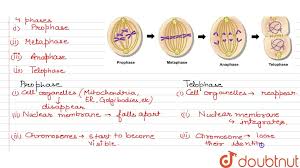 4 phases
(i) Prophase
(ii) Metaphase
(iii) Anaphase
(iv) Telophase
Prophase Metaphase Anaphase Telophase
Prophase
(i) Cell organelles (Mitochondria,
ER, Golgi bodies etc)
disappear
(ii) Nuclear membrane → falls apart
(iii) Chromosomes → start to become
visible
Telophase
(i) Cell organelles → reappear
(ii) Nuclear membrane
↳ integrates.
(iii) Chromosome → loose
their identity
doubtnut